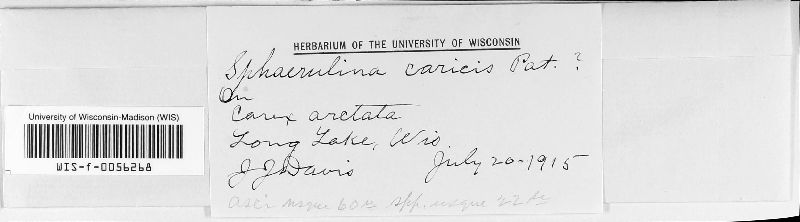 HERBARIUM OF THE UNIVERSITY OF WISCONSIN
Sphaerulina caricis Pat. ?
On
Carex arctata
Long Lake, Wis.
J J Davis July 20-1915
asci usque 60 spp. usque 22
University of Wisconsin-Madison (WIS)
WIS-f-0056268